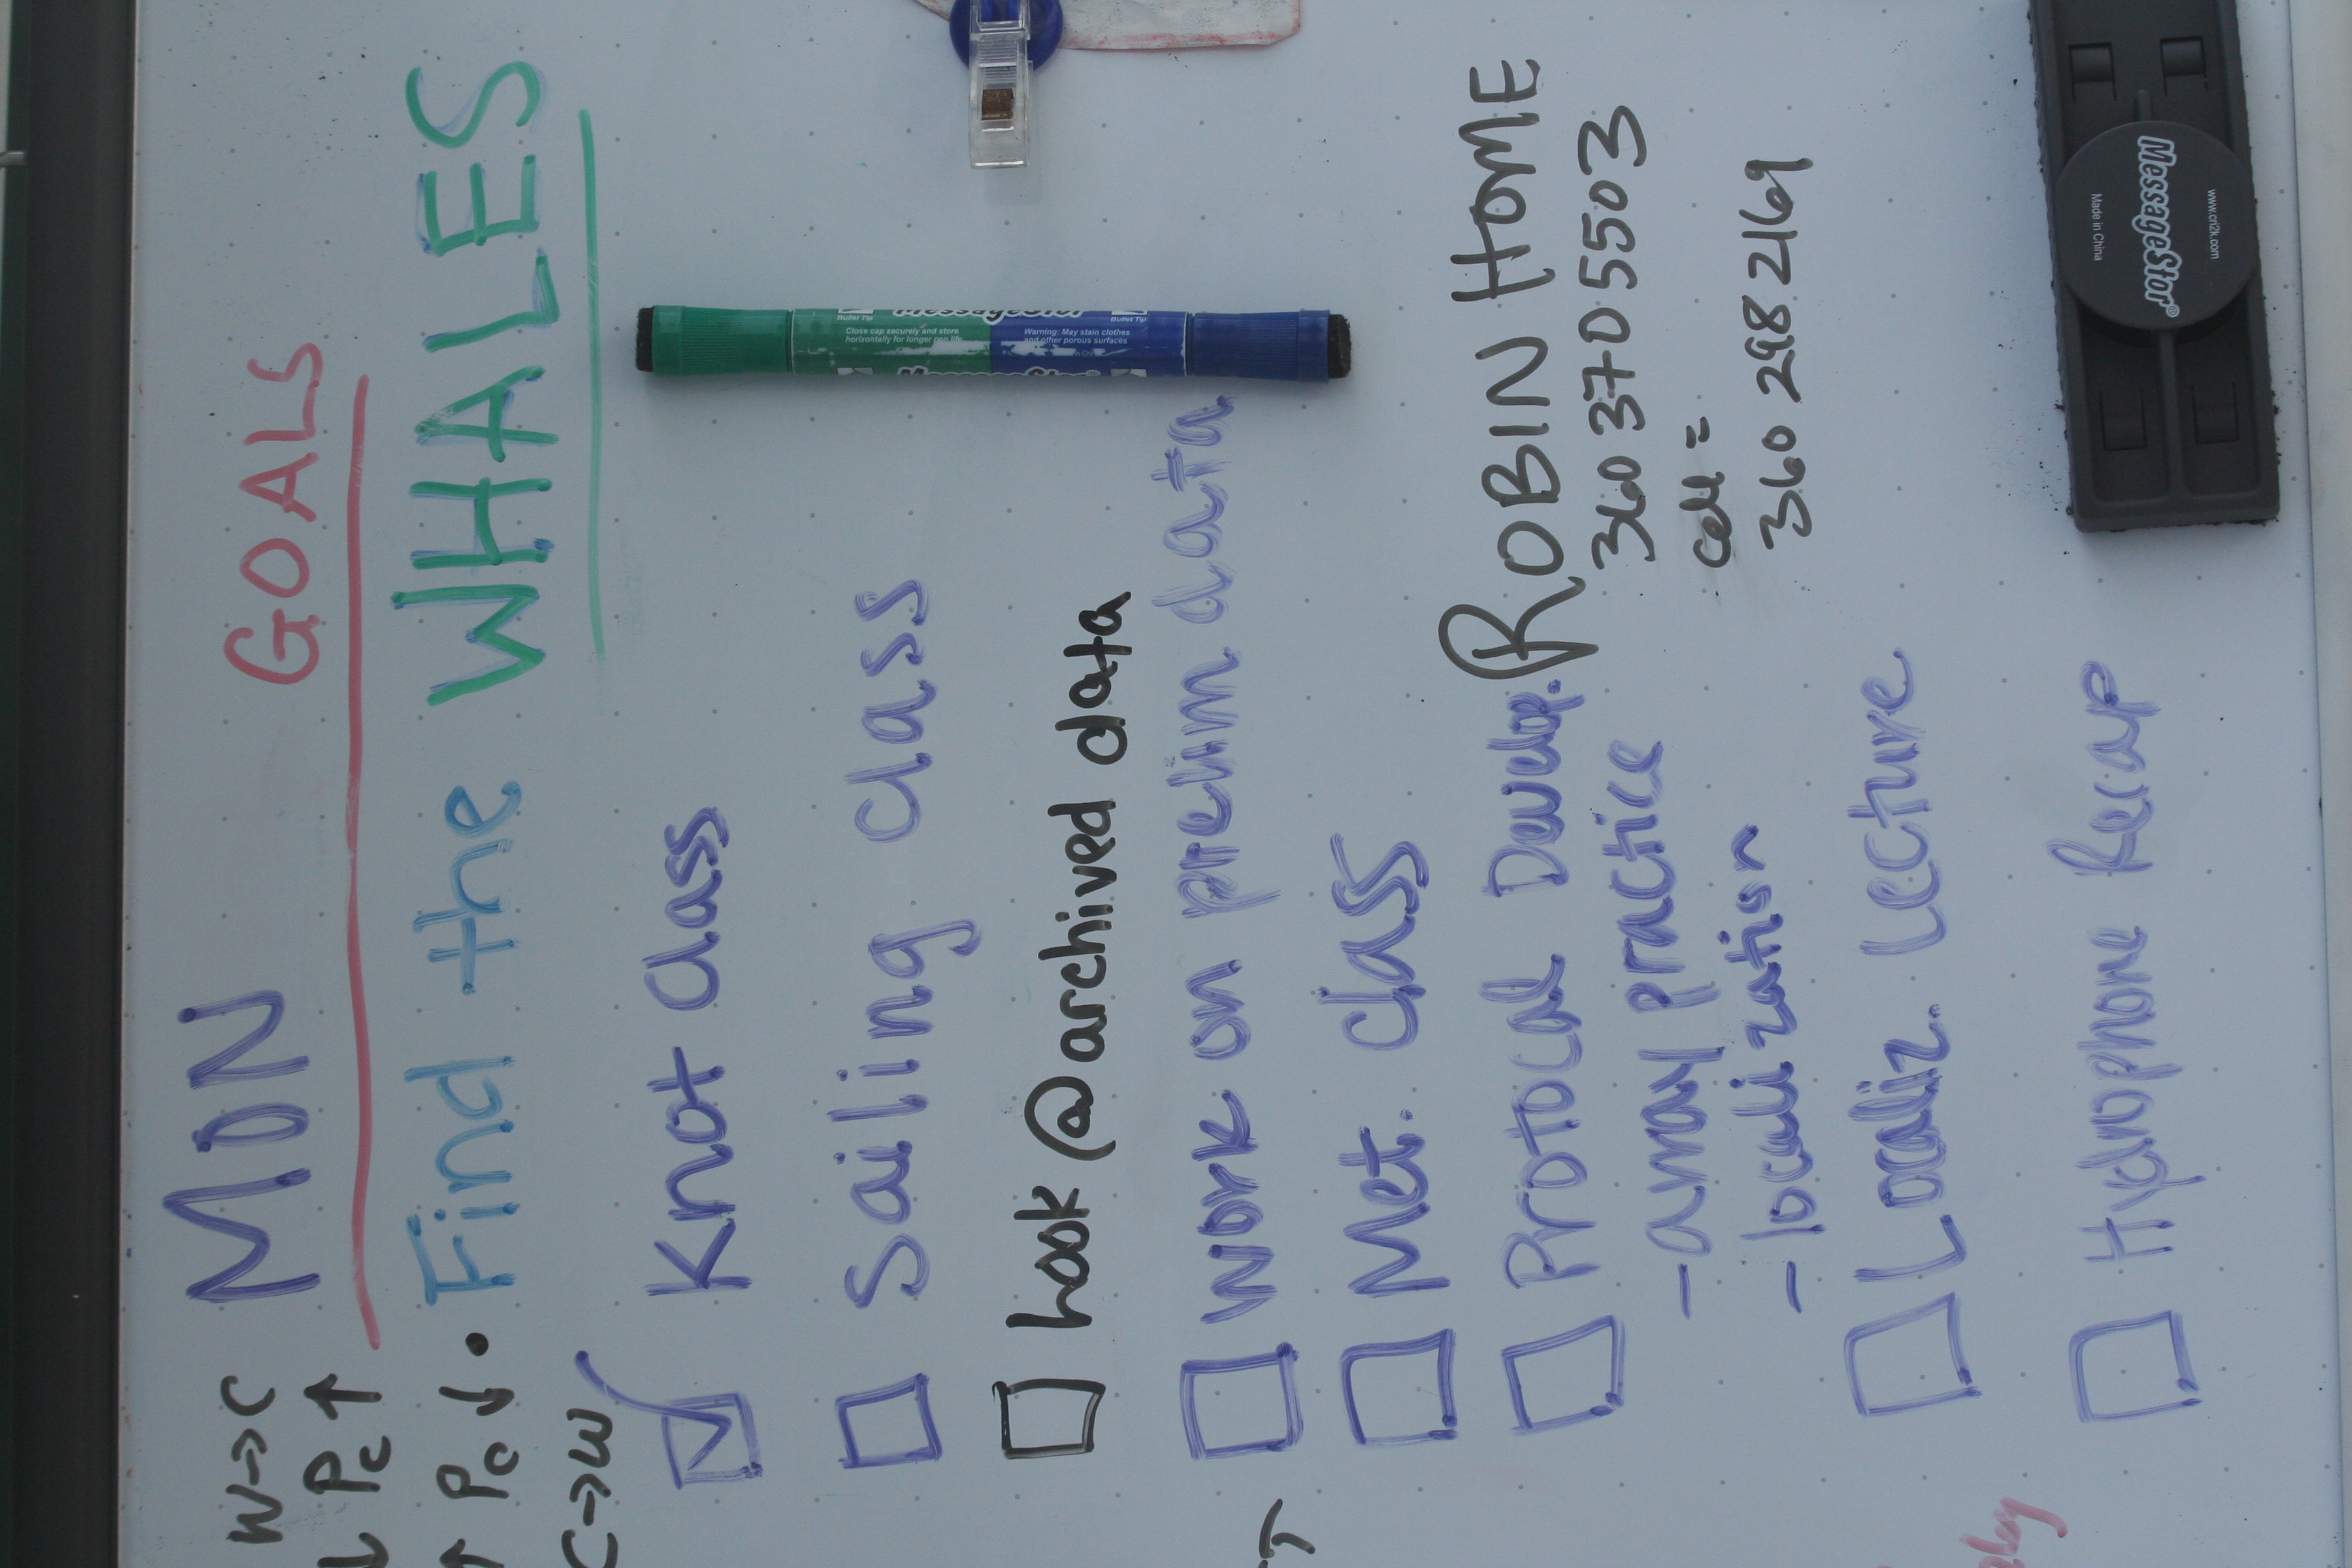 MON GOALS
Find the WHALES
W→C
↓ Pc ↑
↑ Pc ↓
C→W
Knot class
Sailing class
look @ archived data
work on prelim data
Met. class
Protocal Develop.
-array practice
-localization
Localiz. Lecture
Hydrophone Recap
ROBIN HOME
360 370 5503
cell =
360 298 2169
MessageStor
Bullet Tip
Close cap securely and store
horizontally for longer pen life
Warning: May stain clothes
and other porous surfaces
Bullet Tip
MessageStor
www.cri2k.com
MessageStor®
Made in China